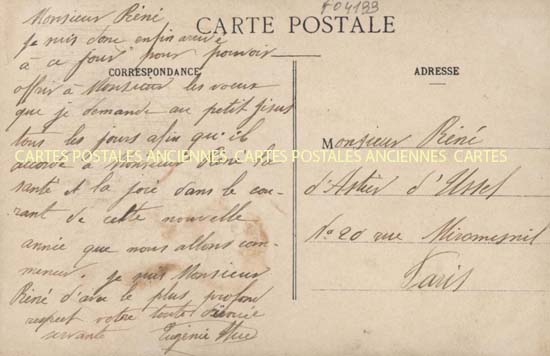 f04199
CARTE POSTALE
CORRESPONDANCE
ADRESSE
Monsieur Réné
Je suis donc enfin arrivé
à ce jour pour pouvoir
offrir à Monsieur les voeux
que je demande au petit Jésus
tous les jours afin qu'il
accorde à Monsieur Réné la
santé et la joie dans le cou-
rant de cette nouvelle
année que nous allons com-
mencer. Je suis Monsieur
Réné d'avec le plus profond
respect votre toute dévouée
servante Eugénie
Monsieur Réné
d'Astier d'Ussel
No 20 rue Miromesnil
Paris
CARTES POSTALES ANCIENNES CARTES POSTALES ANCIENNES CARTES